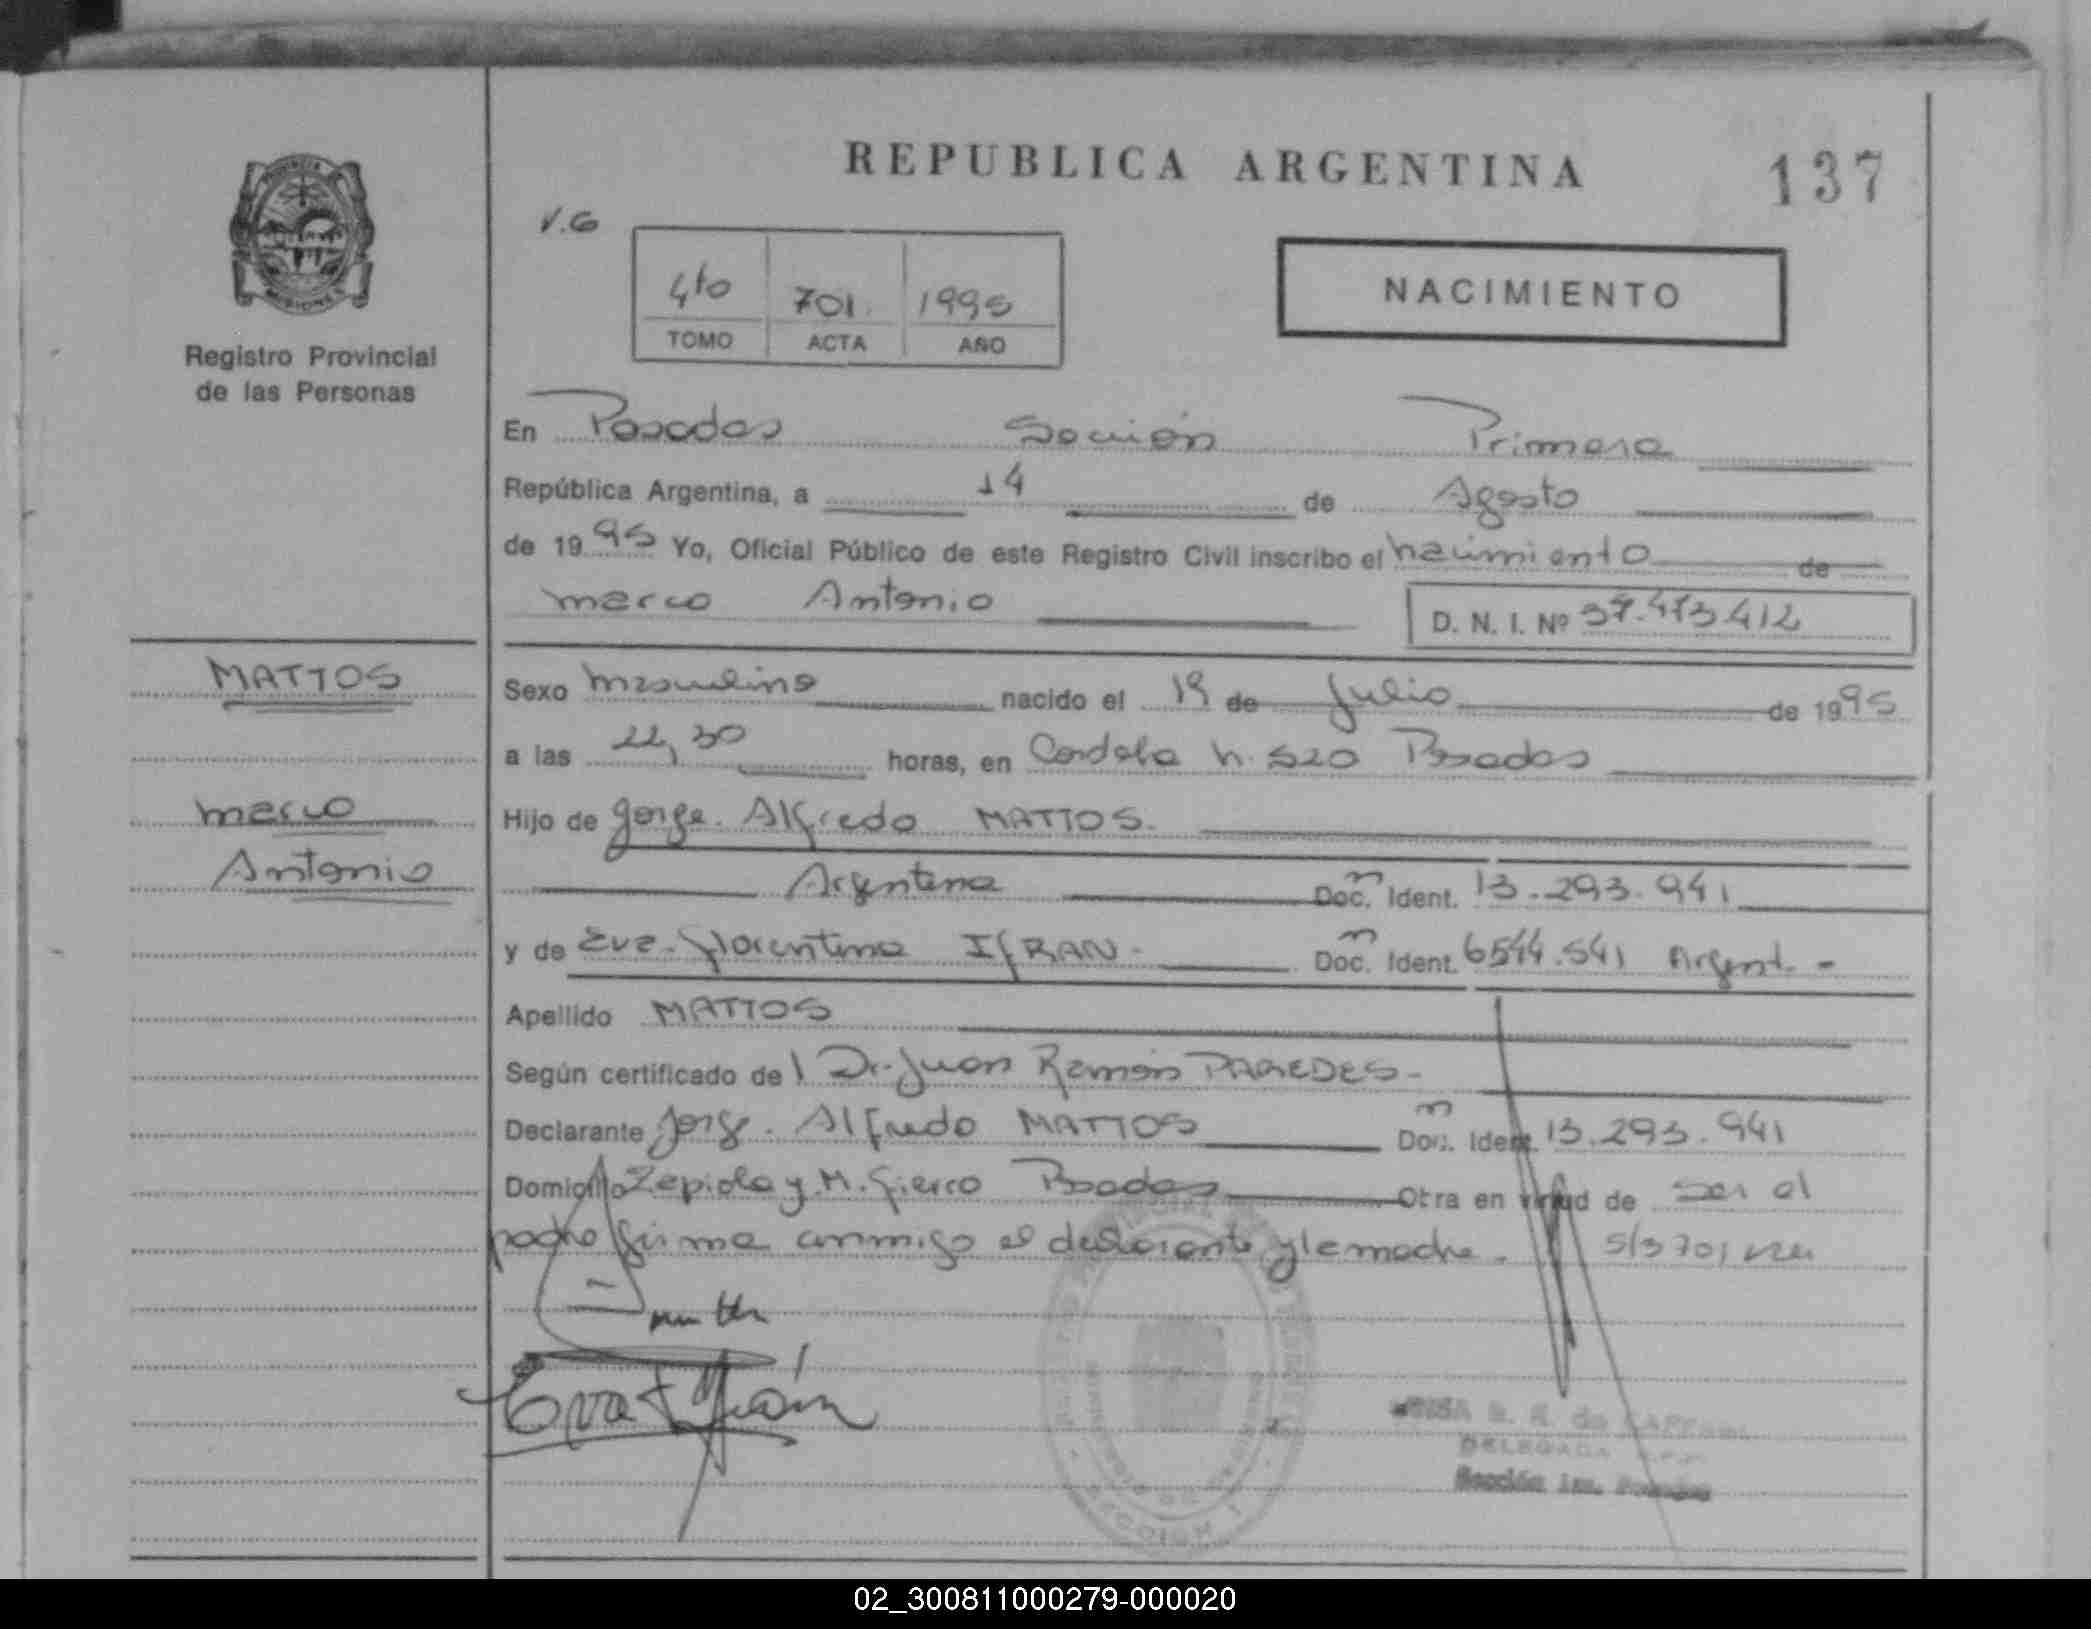 REPUBLICA ARGENTINA
137
V.G
4to 701 1995
TOMO ACTA AÑO
NACIMIENTO
PROVINCIA
MISIONES
Registro Provincial
de las Personas
En Posadas Sección Primera
República Argentina, a 14 de Agosto
de 1995 Yo, Oficial Público de este Registro Civil inscribo el nacimiento de
Marco Antonio
D. N. I. Nº 37.473.412
MATTOS
Marco
Antonio
Sexo masculino nacido el 19 de Julio de 1995
a las 22,30 horas, en Cordoba n. 520 Posadas
Hijo de Jorge Alfredo MATTOS.
Argentina Doc. Ident. 13.293.941
y de Eva Florentina IfRAN - Doc. Ident. 6544.541 Argent. -
Apellido MATTOS
Según certificado del Dr. Juan Ramón PAREDES -
Declarante Jorge Alfredo MATTOS Doc. Ident. 13.293.941
Domicilio Zapiola y M. Fierro Posadas Otra en virtud de ser el
padre firma conmigo el declarante y la madre.
Eva F Ifrán
SECCION 1
DELEGADA
Sección 1ra. Posadas
02_300811000279-000020